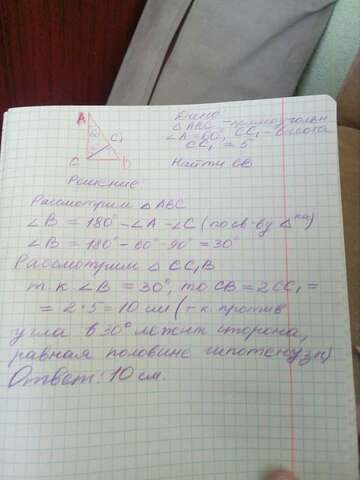 A
C₁
C
B
Дано:
△ABC – прямоугольн
∠A=60°, CC₁ – высота
CC₁ = 5
Найти CB
Решение:
Рассмотрим △ABC
∠B = 180° - ∠A - ∠C (по св-ву △ка)
∠B = 180° - 60° - 90° = 30°
Рассмотрим △CC₁B
т.к. ∠B = 30°, то CB = 2CC₁ =
= 2·5 = 10 см (т.к. против
угла в 30° лежит сторона,
равная половине гипотенузы)
Ответ: 10 см.